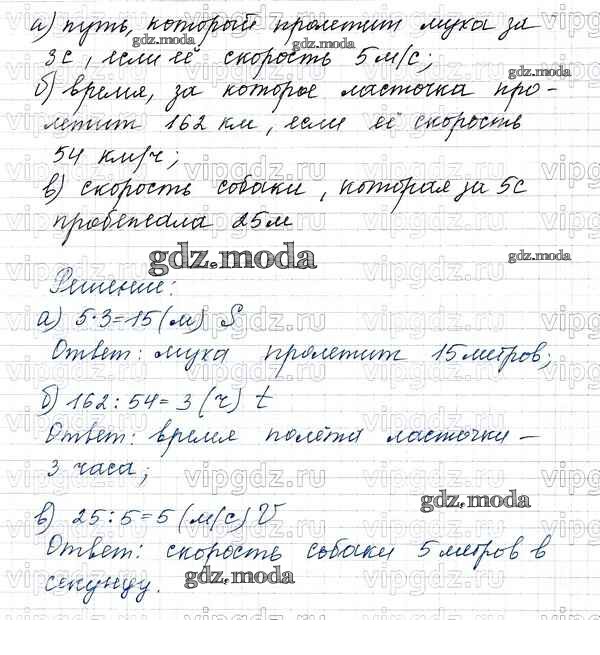 а) путь, который пролетит муха за
3с, если её скорость 5 м/с;
б) время, за которое ласточка про-
летит 162 км, если её скорость
54 км/ч;
в) скорость собаки, которая за 5с
пробежала 25м
Решение:
а) 5·3=15(м) S
Ответ: муха пролетит 15 метров;
б) 162:54=3(ч) t
Ответ: время полёта ласточки –
3 часа;
в) 25:5=5(м/с) V
Ответ: скорость собаки 5 метров в
секунду.
gdz.moda
gdz.moda
gdz.moda
gdz.moda
gdz.moda
gdz.moda
gdz.moda
vipgdz.ru